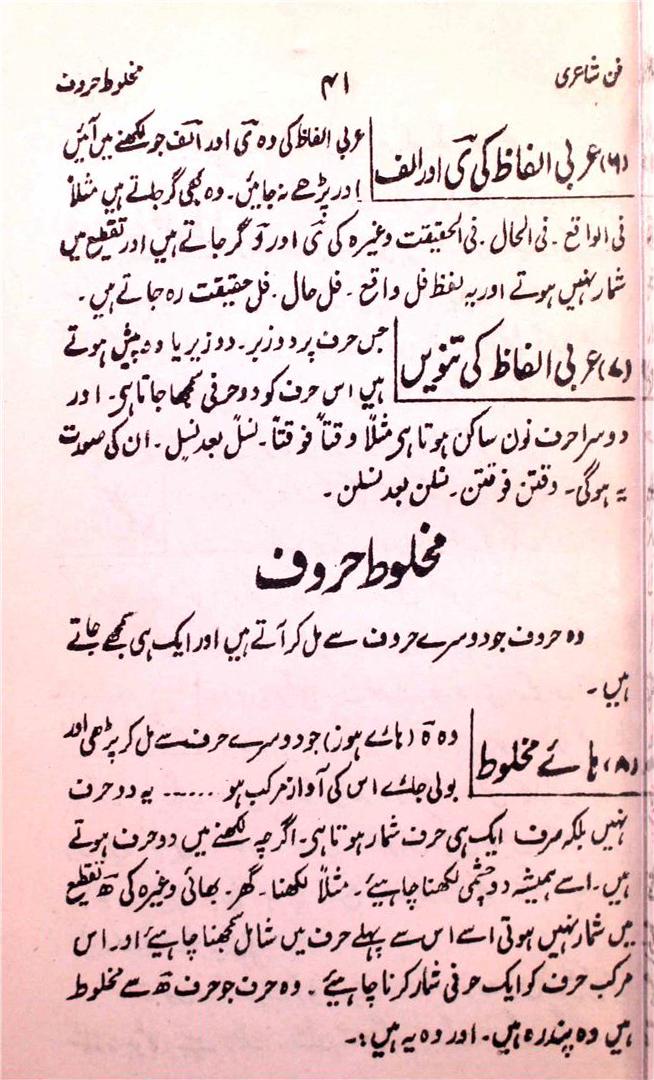 فن شاعری ۴۱ مخلوط حروف
(۶) عربی الفاظ کی ی اور الف
عربی الفاظ کی وہ ی اور الف جو لکھنے میں آئیں
اور پڑھے نہ جائیں۔ وہ بھی گر جاتے ہیں مثلاً
فی الواقع۔ فی الحال۔ فی الحقیقت وغیرہ کی ی اور و گر جاتے ہیں اور تقطیع میں
شمار نہیں ہوتے اور یہ لفظ فل واقع۔ فل حال۔ فل حقیقت رہ جاتے ہیں۔
(۷) عربی الفاظ کی تنویں
جس حرف پر دو زبر۔ دو زیر یا دو پیش ہوتے
ہیں اس حرف کو دو حرفی سمجھا جاتا ہی۔ اور
دوسرا حرف نون ساکن ہوتا ہی مثلاً وقتاً فوقتاً۔ نسلً بعد نسلٍ۔ ان کی صورت
یہ ہوگی۔ وقتن فوقتن۔ نسلن بعد نسلن۔
مخلوط حروف
وہ حروف جو دوسرے حروف سے مل کر آتے ہیں اور ایک ہی سمجھے جاتے
ہیں۔
(۸) ہائے مخلوط
وہ ہ (ہائے ہوز) جو دوسرے حرف سے مل کر پڑھی اور
بولی جائے اس کی آواز مرکب ہو ..... یہ دو حرف
نہیں بلکہ صرف ایک ہی حرف شمار ہوتا ہی۔ اگرچہ لکھنے میں دو حرف ہوتے
ہیں۔ اسے ہمیشہ دو چشمی لکھنا چاہیئے۔ مثلاً لکھنا۔ گھر۔ بھائی وغیرہ کی ھ تقطیع
میں شمار نہیں ہوتی اسے اس سے پہلے حرف میں شامل سمجھنا چاہیئے اور اس
مرکب حرف کو ایک حرفی شمار کرنا چاہیئے۔ وہ حرف جو حرف ھ سے مخلوط
ہیں وہ پندرہ ہیں۔ اور وہ یہ ہیں:۔